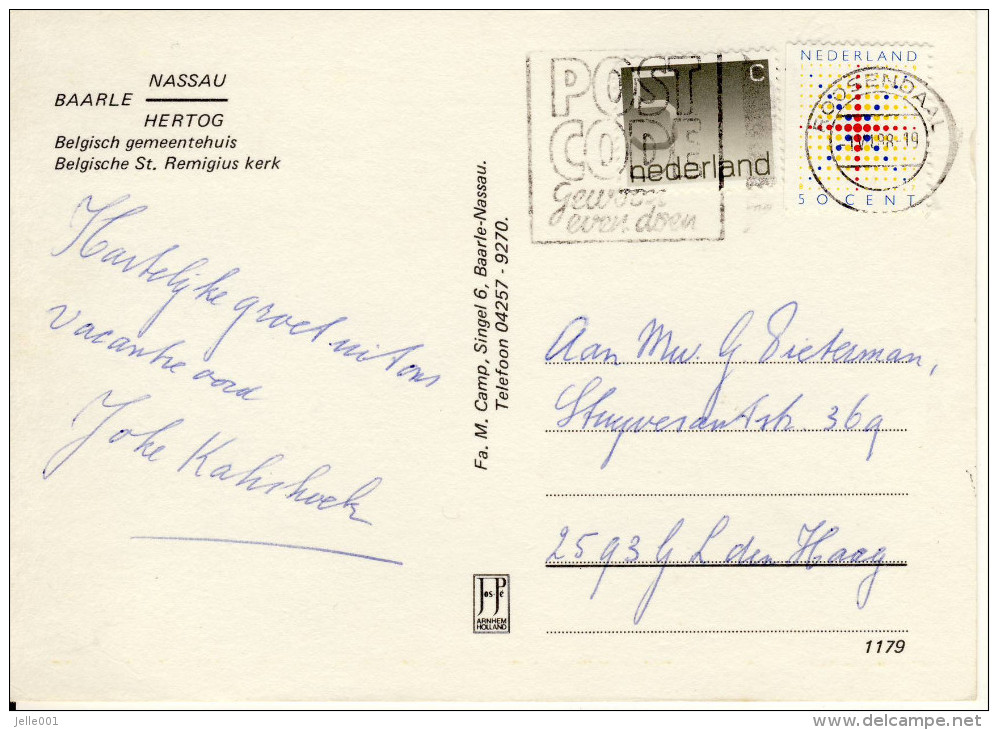 NASSAU
BAARLE
HERTOG
Belgisch gemeentehuis
Belgische St. Remigius kerk
Hartelijke groet uit ons
vacantie oord
Joke Kalishoek
Fa. M. Camp, Singel 6, Baarle-Nassau.
Telefoon 04257 - 9270.
Jos-Pé
ARNHEM
HOLLAND
POST
CODE
Gewoon
even doen
5 c
nederland
NEDERLAND
50 CENT
ROOSENDAAL
88-19
Aan Mw. G Pieterman,
Stuyvesantstr. 369
2593 G L den Haag
1179
jelle001
www.delcampe.net